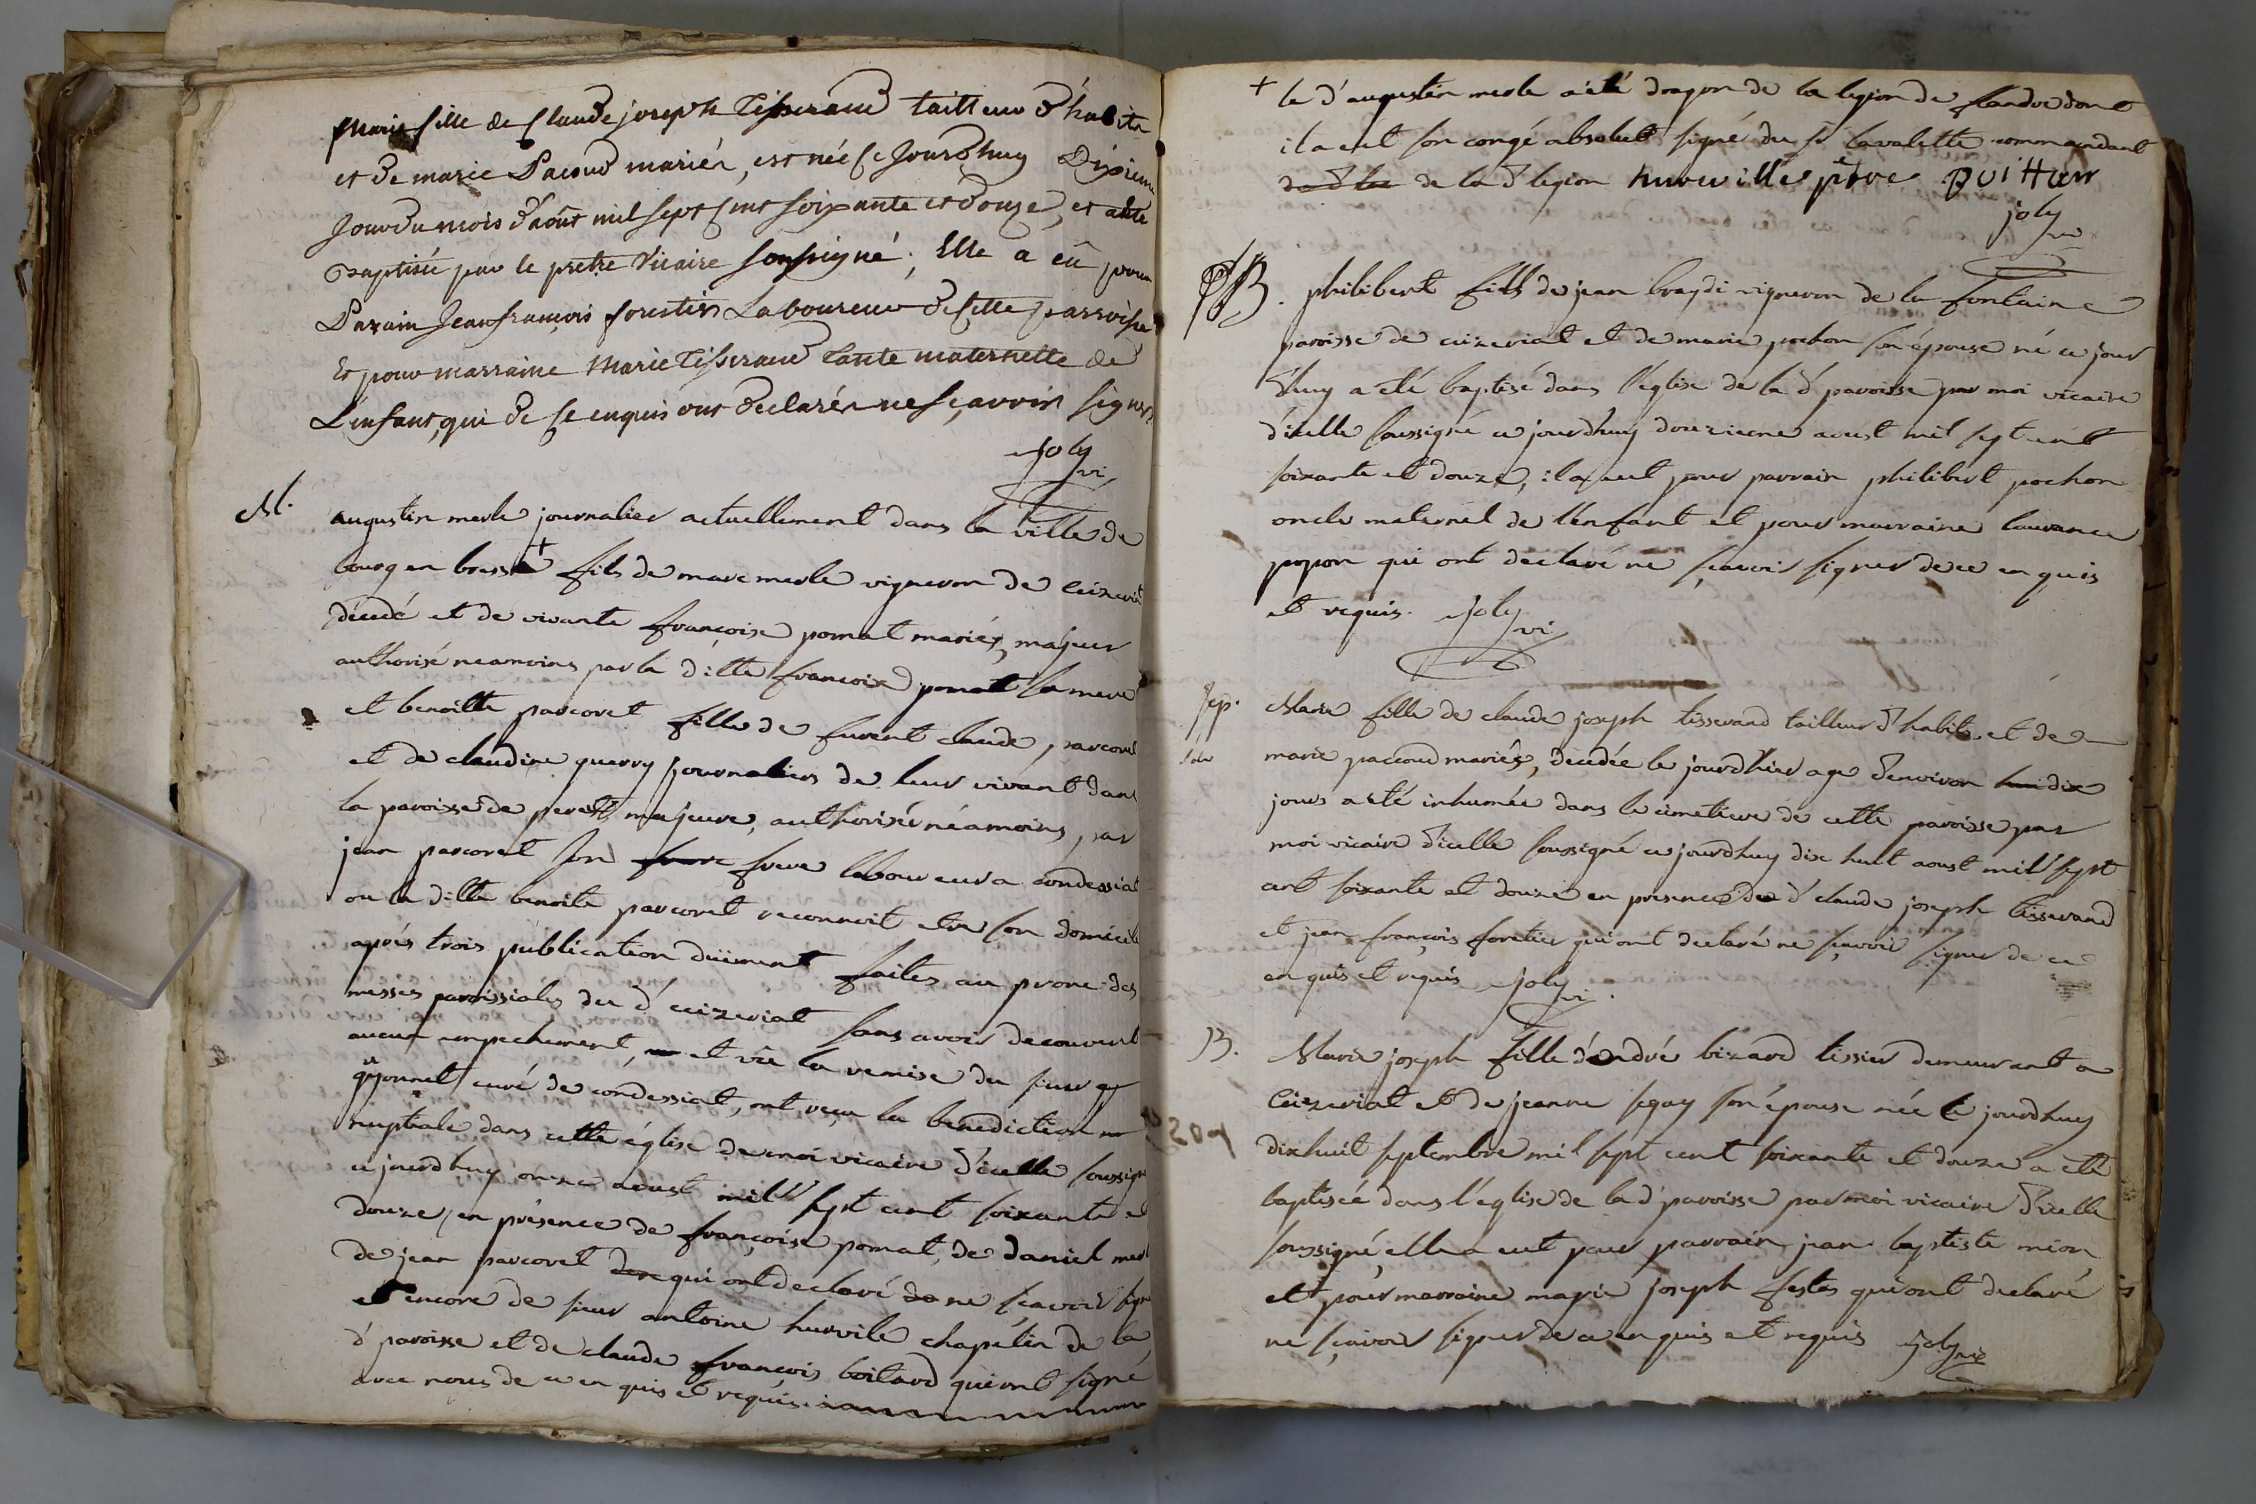 Marie fille de Claude joseph Tisserand tailleur d'habits
et de marie Pacoud mariés, est née ce Jourdhuy Dixieme
Jour du mois d'août mil sept cent soixante et douze, et a été
Baptisée par le pretre Vicaire soussigné; Elle a eû pour
Parain Jean françois forestier Laboureur de cette parroisse
Et pour marraine Marie Tisserand tante maternelle de
L'enfant, qui de ce enquis ont declarés ne sçavoir signer
Joly
vi.
M.
augustin merle journalier actuellement dans la ville de
bourg en bresse + fils de marc merle vigneron de Ceizeriat
décédé et de vivante françoise pomat mariés, majeur
authorisé neamoins par la ditte françoise pomat sa mere
et benoitte parcoret fille de furent claude parcoret
et de claudine querry journaliers de leur vivant dans
la paroisse de majeure, authorisée néamoins par
jean parcoret son frere laboureur a condessiat
ou la ditte benoite parcoret reconnoit etre son domicile
aprés trois publication düement faites au prone des
messes paroissiales du d' ceizeriat sans avoir decouvert
aucun empechement, et vüe la remise du sieur
guyonnet curé de condessiat, ont reçu la benediction
nuptiale dans cette église de moi vicaire d'icelle soussigné
ce jourdhuy onze aoust mill sept cent soixante et
douze, en présence de françoise pomat, de daniel merle
de jean parcoret qui ont declaré ne sçavoir signer
et encore de sieur antoine hurvile chapelin de la
d' paroisse et de claude françois boitard qui ont signé
avec nous de ce en quis et requis.
+ le d' augustin merle a été dragon de la legion de flandre dont
il a eut son congé absolut signé du sr lavalette commandant
de la d' legion hureuille ptre Buittar
joly
vi
B. philibert fills de jean braydi vigneron de la fontaine
paroisse de ceizeriat et de marie pochon son épouse né ce jour
d'huy a été baptisé dans l'église de la d' paroisse par moi vicaire
d'icelle soussigné ce jourdhuy douzieme aoust mil sept cent
soixante et douze, il a eut pour parrain philibert pochon
oncle maternel de l'enfant et pour marraine laurance
popon qui ont declaré ne sçavoir signer de ce en quis
et requis. Joly
vi
Sep.
Marie fille de claude joseph tisserand tailleur d'habits et de
marie paccoud mariés, décédée le jourdhier age d'environ huit dix
jours a eté inhumée dans le cimetiere de cette paroisse par
moi vicaire d'icelle soussigné ce jourdhuy dix huit aoust mil sept
cent soixante et douze en presence du d' claude joseph tisserand
et jean françois foretier qui ont declaré ne sçavoir signer de ce
en quis et requis Joly
vi.
B. Marie joseph fille d'andré bizard tissier demeurant a
Ceizeriat et de jeanne segay son épouse née le jourdhuy
dixhuit septembre mil sept cent soixante et douze a été
baptisée dans l'église de la d' paroisse par moi vicaire d'icelle
soussigné, elle a eut pour parrain jean baptiste mion
et pour marraine marie joseph festas qui ont declaré
ne sçavoir signer de ce en quis et requis Joly vi
209